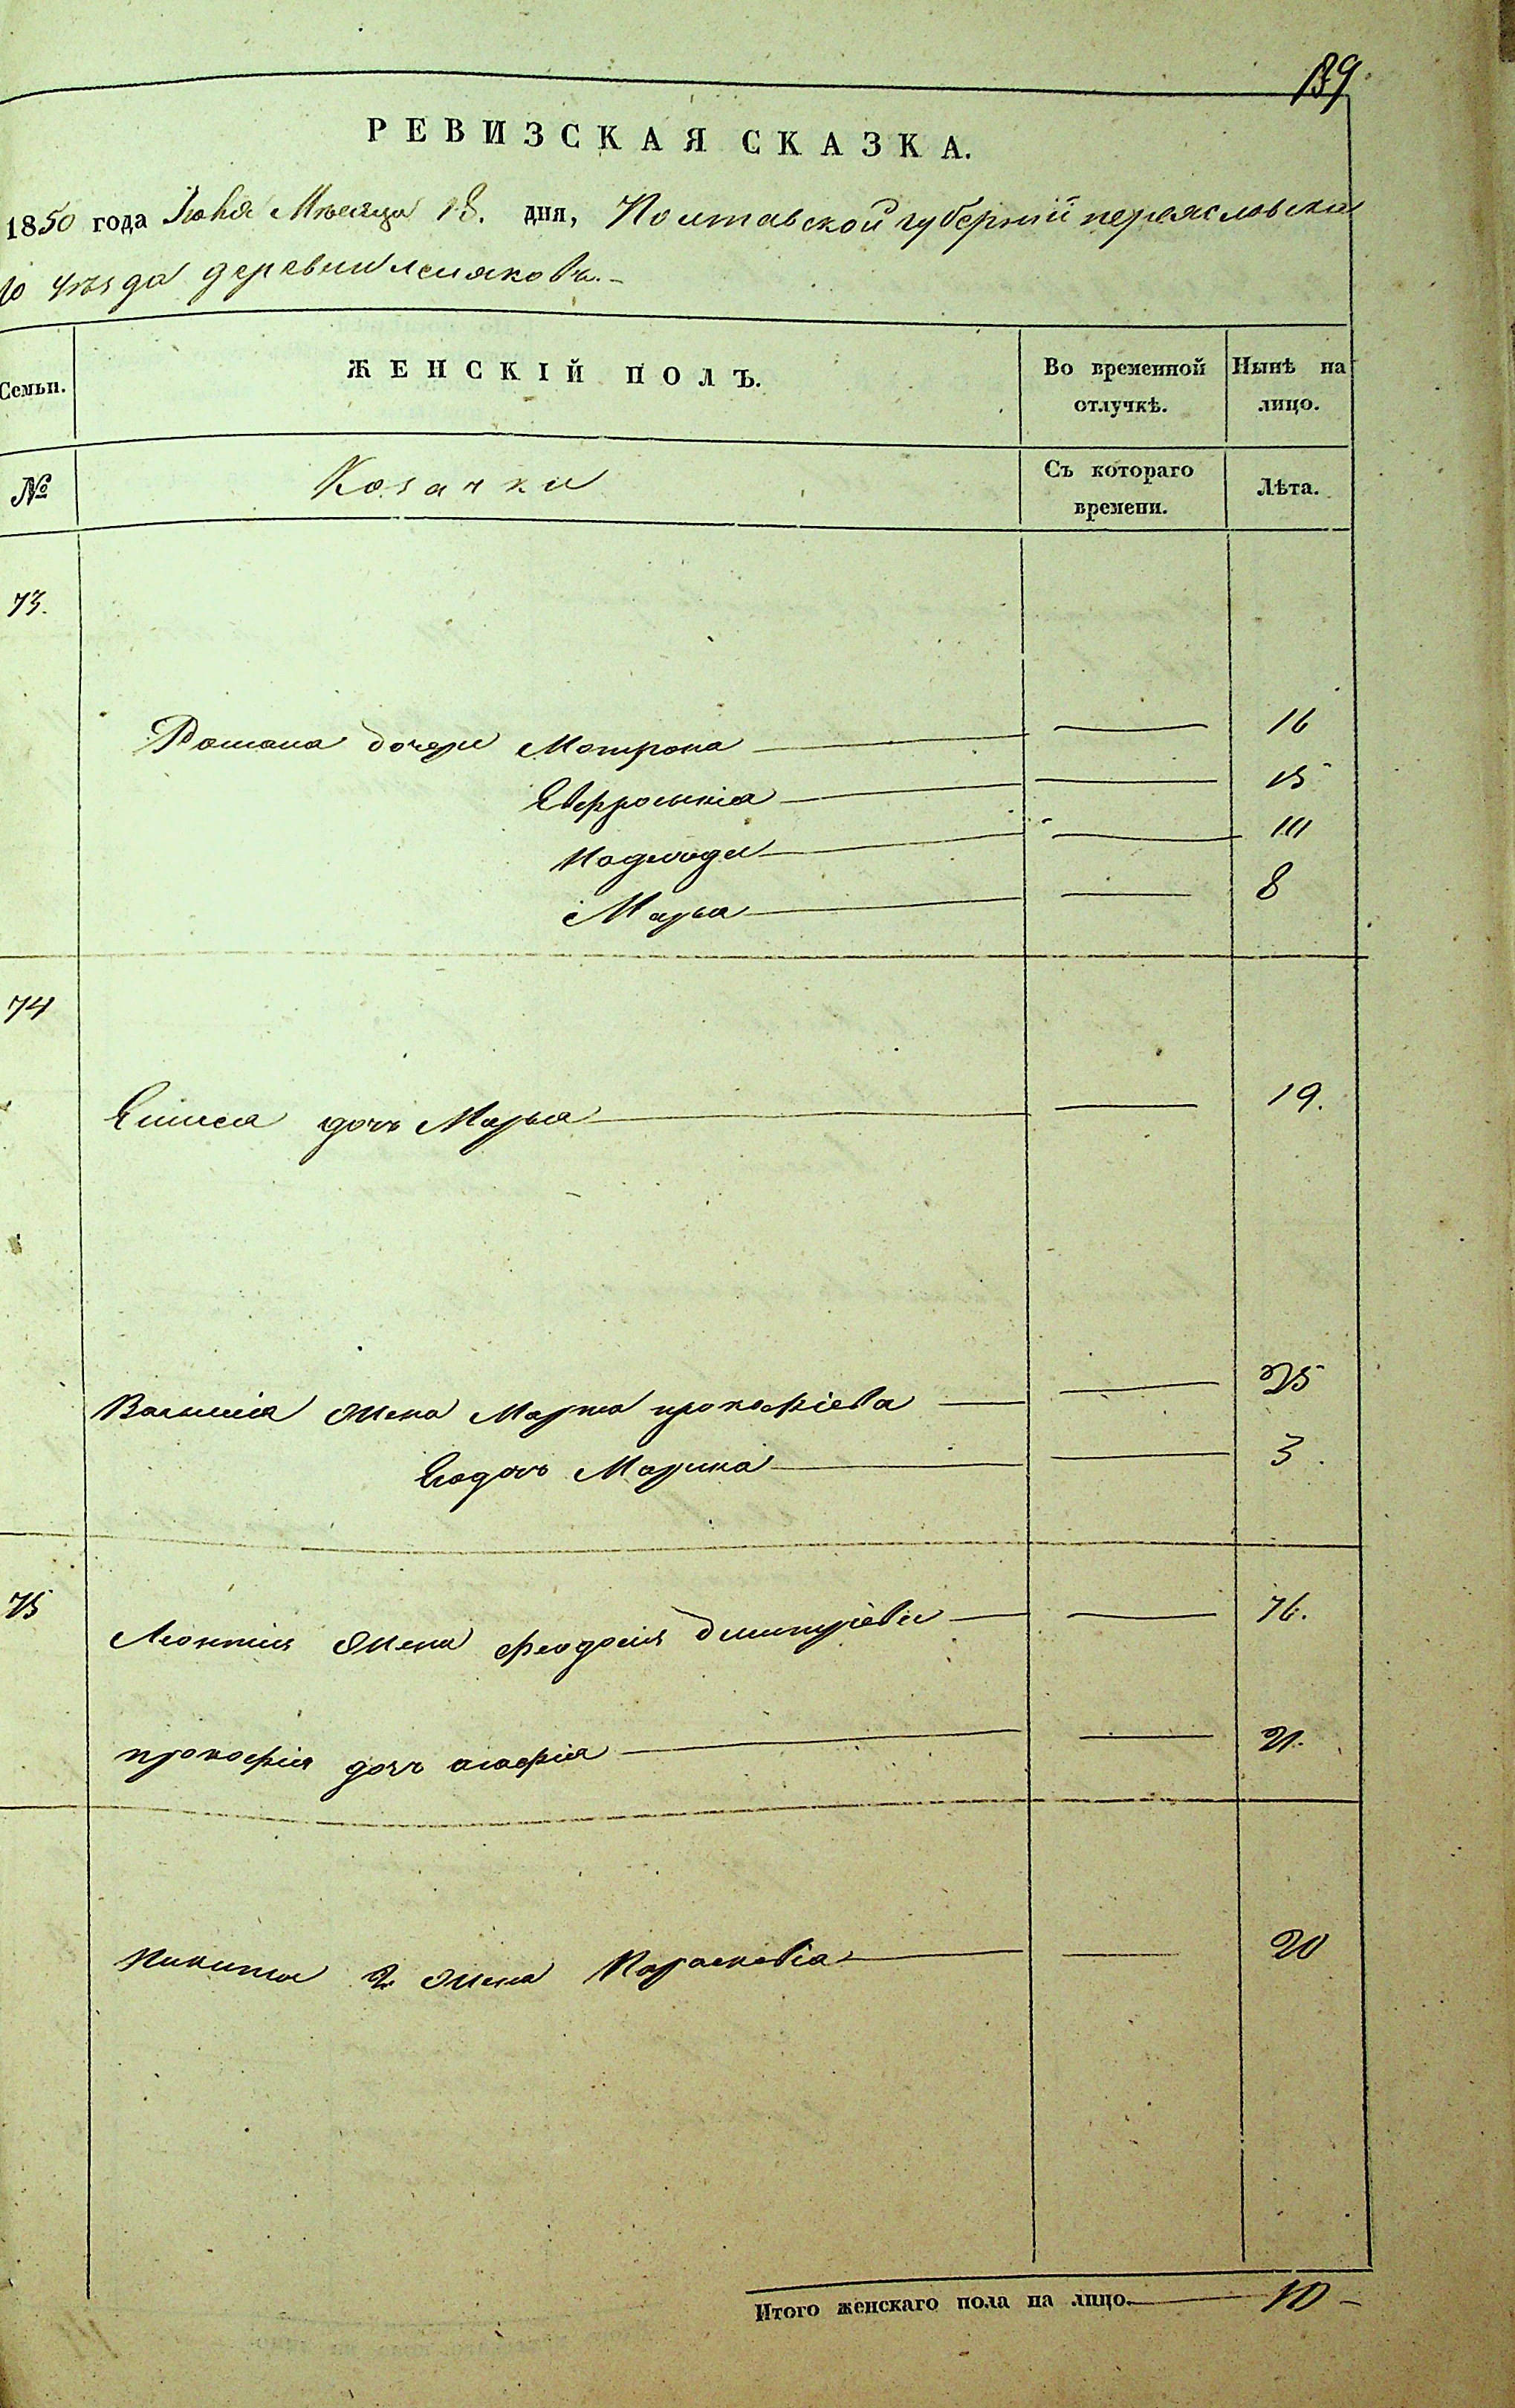 139
РЕВИЗСКАЯ СКАЗКА.
1850 года Іюня Мѣсяца 18. дня, Полтавской губерніи переясловска
го уѣзда деревни лемяковъ.
Семьи. ЖЕНСКІЙ ПОЛЪ. Во временной отлучкѣ. Нынѣ на лицо.
№ Козачки Съ котораго времени. Лѣта.
73.
Романа дочери Мотрона — — 16
Евфросинія — — 15
— — 11
Марья — — 8
74
дочь Марья — — 19.
Василія жена Марфа прокофіева — — 25
Его дочь Марина — — 3.
75 Леонтія жена феодосия дмитріева — — 76.
прокофія дочь агафія — — 21.
Никиты 2 жена Параскевіа — — 20
Итого женскаго пола на лицо. — 10 —